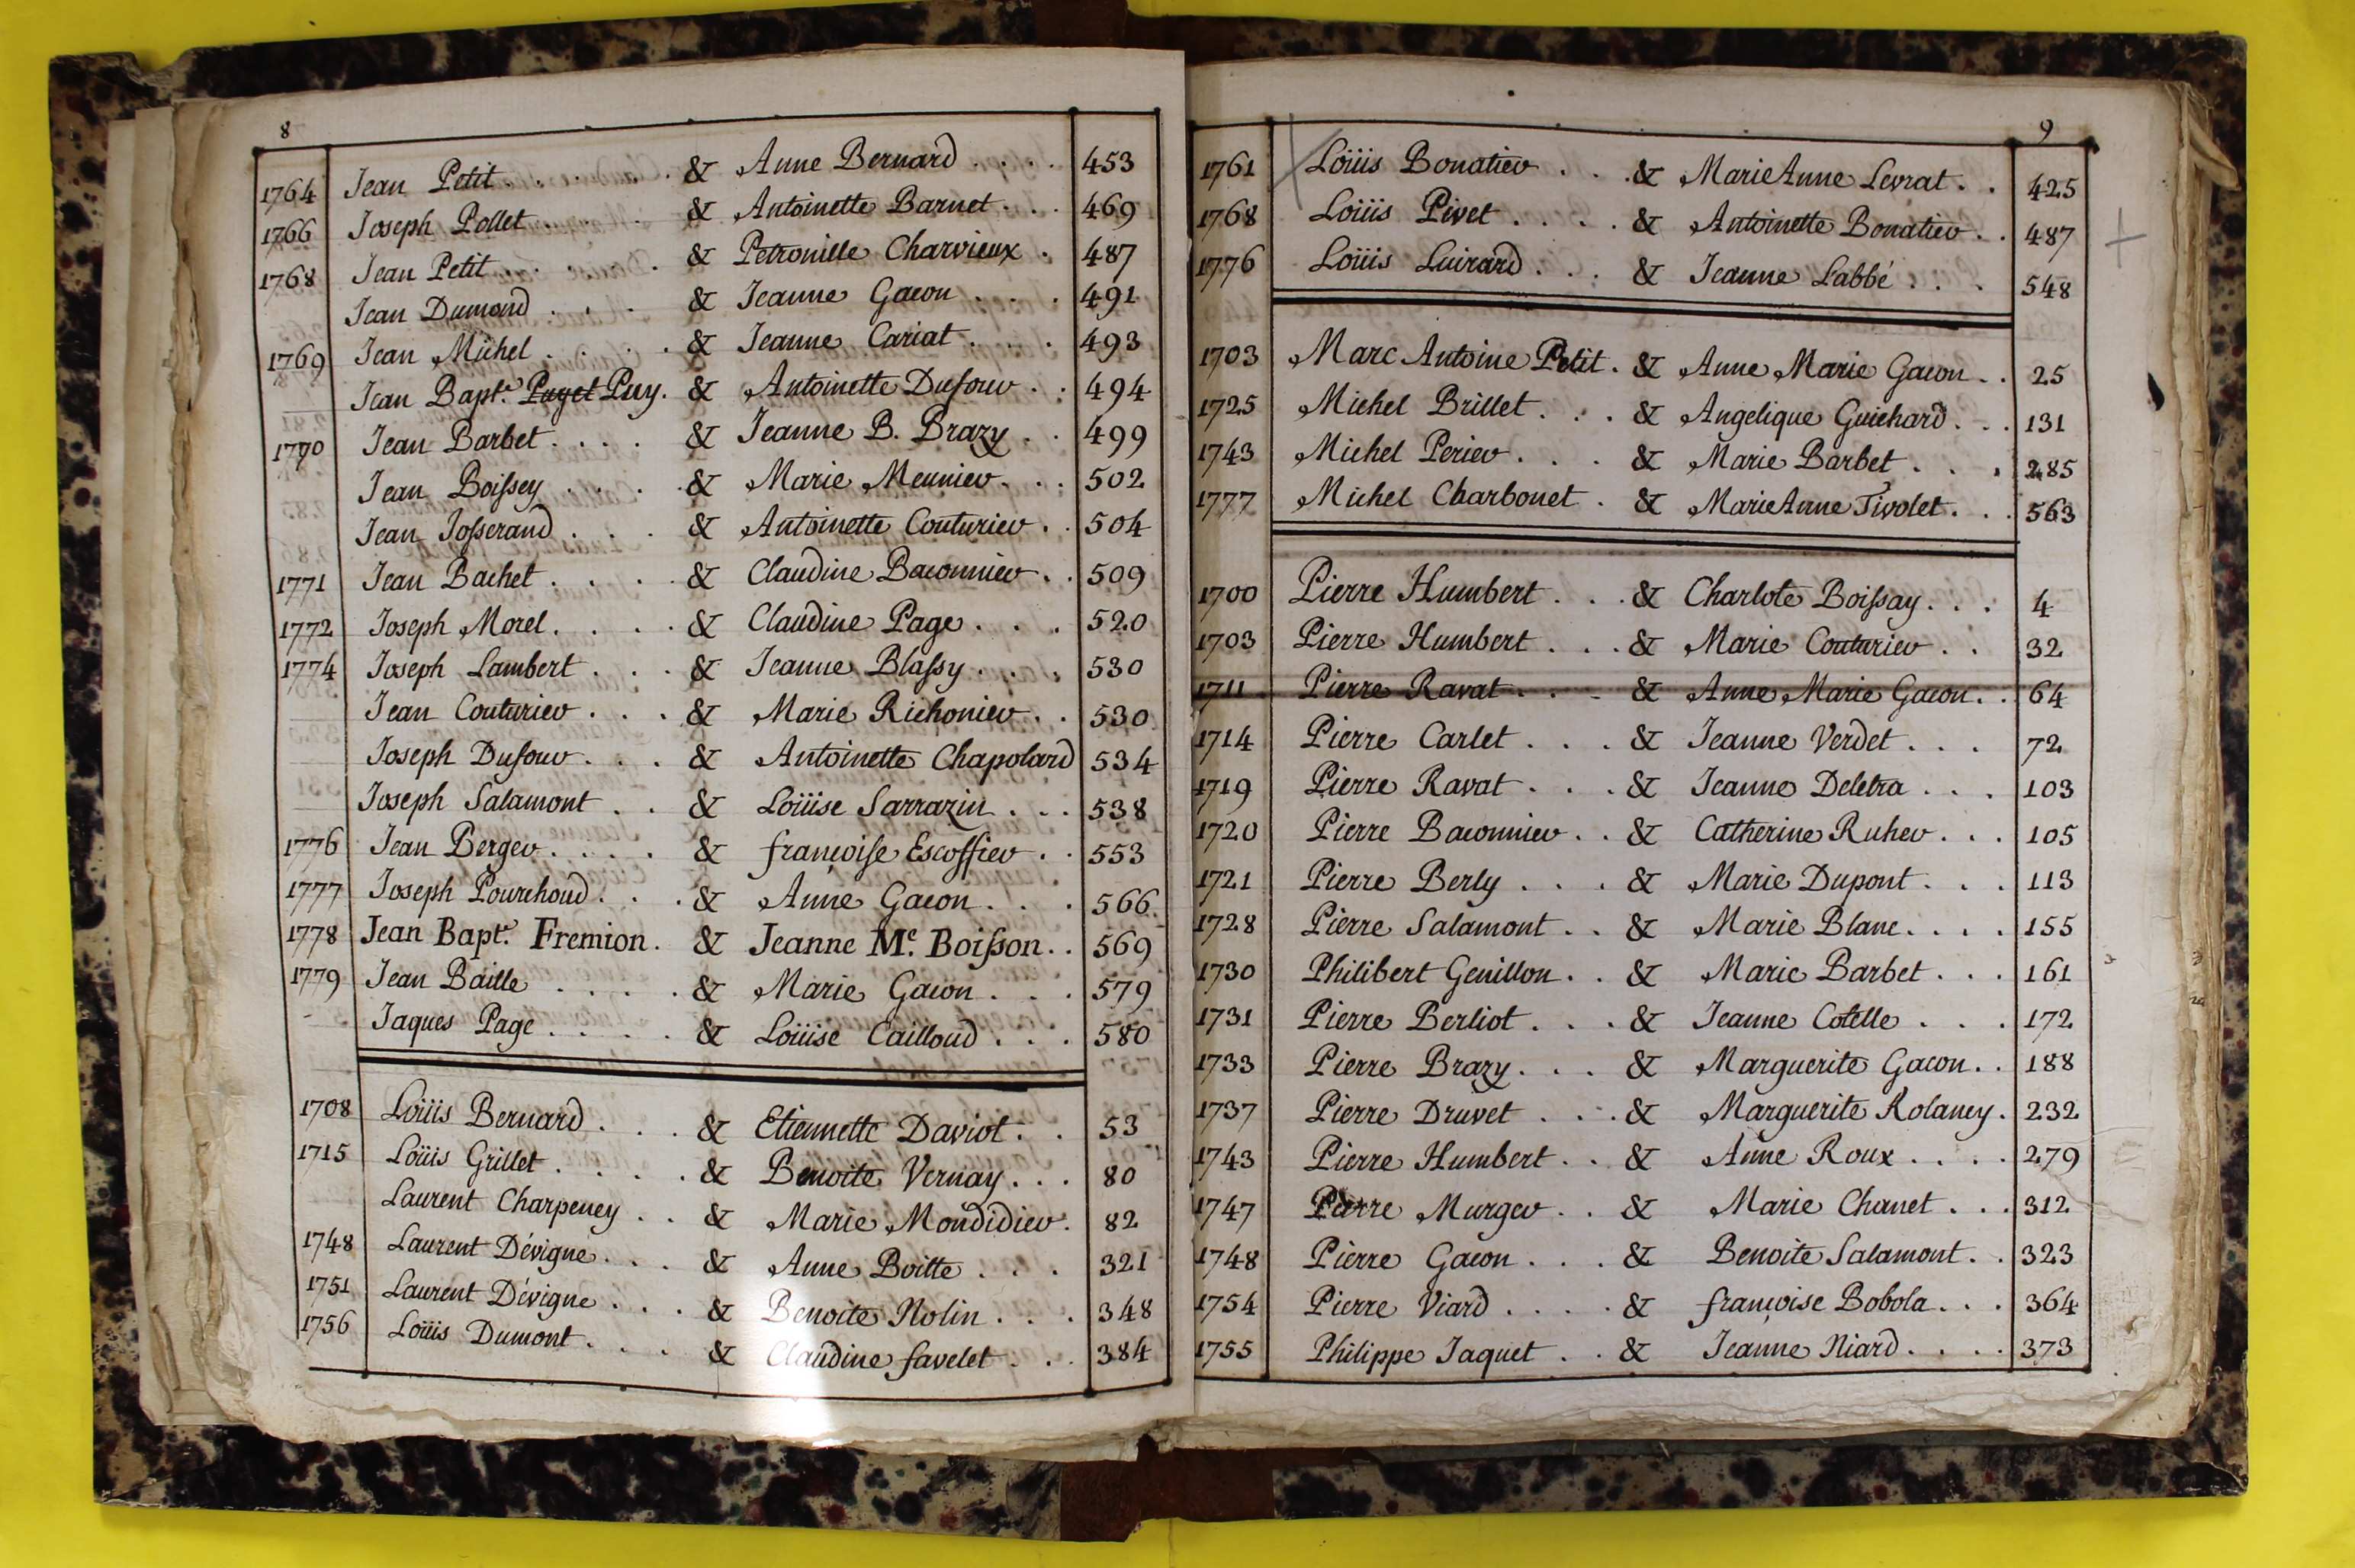 8
1764 Jean Petit . . . . . & Anne Bernard . . . . 453
1766 Joseph Pollet . . . & Antoinette Barnet . . . 469
1768 Jean Petit . . . . . & Petronille Charvieux . 487
Jean Dumond . . . & Jeanne Gacon . . . . 491
1769 Jean Michel . . . . & Jeanne Cariat . . . . 493
Jean Bapt.e Puget Puy. & Antoinette Dufour . . 494
1770 Jean Barbet . . . . & Jeanne B. Brazy . . 499
Jean Boissey . . . . & Marie Meunier . . . 502
Jean Josserand . . . & Antoinette Couturier . . 504
1771 Jean Bachet . . . . & Claudine Baconnier . . 509
1772 Joseph Morel . . . . & Claudine Page . . . . 520
1774 Joseph Lambert . . . & Jeanne Blassy . . . . 530
Jean Couturier . . . & Marie Richonier . . 530
Joseph Dufour . . . & Antoinette Chapolard 534
Joseph Salamont . . & Loüise Sarrazin . . . 538
1776 Jean Berger . . . . & françoise Escoffier . . 553
1777 Joseph Pourchoud . . . & Anne Gacon . . . . 566
1778 Jean Bapt.e Fremion . & Jeanne M.e Boisson . . 569
1779 Jean Baille . . . . . & Marie Gacon . . . . 579
Jaques Page . . . . . & Loüise Cailloud . . . 580
1708 Loüis Bernard . . . & Etiennette Daviot . . 53
1715 Loüis Grillet . . . . & Benoite Vernay . . . 80
Laurent Charpeney . . & Marie Mondidier . 82
1748 Laurent Dévigne . . . & Anne Boitte . . . 321
1751 Laurent Dévigne . . . & Benoite Nolin . . . 348
1756 Loüis Dumont . . . . & Claudine favelet . . . 384
9
1761 Loüis Bonatier . . . & Marie Anne Levrat . . 425
1768 Loüis Pivet . . . . & Antoinette Bonatier . . 487
1776 Loüis Luirard . . . & Jeanne Labbé . . . 548
1703 Marc Antoine Petit . & Anne Marie Gacon . . 25
1725 Michel Brillet . . . & Angelique Guichard . . . 131
1743 Michel Perier . . . & Marie Barbet . . . 285
1777 Michel Charbonet . & Marie Anne Tivolet . . . 563
1700 Pierre Humbert . . . & Charlote Boissay . . . 4
1703 Pierre Humbert . . . & Marie Couturier . . 32
1711 Pierre Ravat . . . & Anne Marie Gacon . . 64
1714 Pierre Carlet . . . & Jeanne Verdet . . . 72
1719 Pierre Ravat . . . & Jeanne Deletra . . . 103
1720 Pierre Baconnier . . & Catherine Ruher . . . 105
1721 Pierre Berly . . . & Marie Dupont . . . 113
1728 Pierre Salamont . . & Marie Blanc . . . . 155
1730 Philibert Genillon . . & Marie Barbet . . . 161
1731 Pierre Berliot . . . & Jeanne Cotelle . . . 172
1733 Pierre Brazy . . . & Marguerite Gacon . . 188
1737 Pierre Druvet . . . & Marguerite Rolaney . 232
1743 Pierre Humbert . . & Anne Roux . . . . 279
1747 Pierre Murger . . & Marie Chanet . . . 312
1748 Pierre Gacon . . . & Benoite Salamont . . 323
1754 Pierre Viard . . . . & françoise Bobola . . . 364
1755 Philippe Jaquet . . & Jeanne Niard . . . . 373